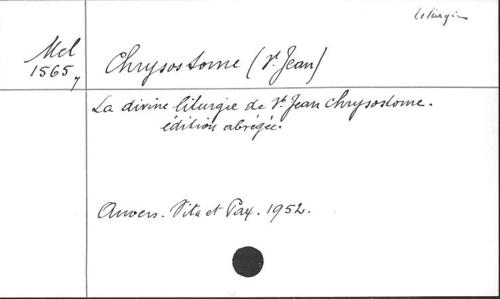 Liturgie
Mel
1565,7
Chrysostome (St. Jean)
La divine liturgie de St. Jean Chrysostome.
édition abrégée.
Anvers. Vita et Pax. 1952.